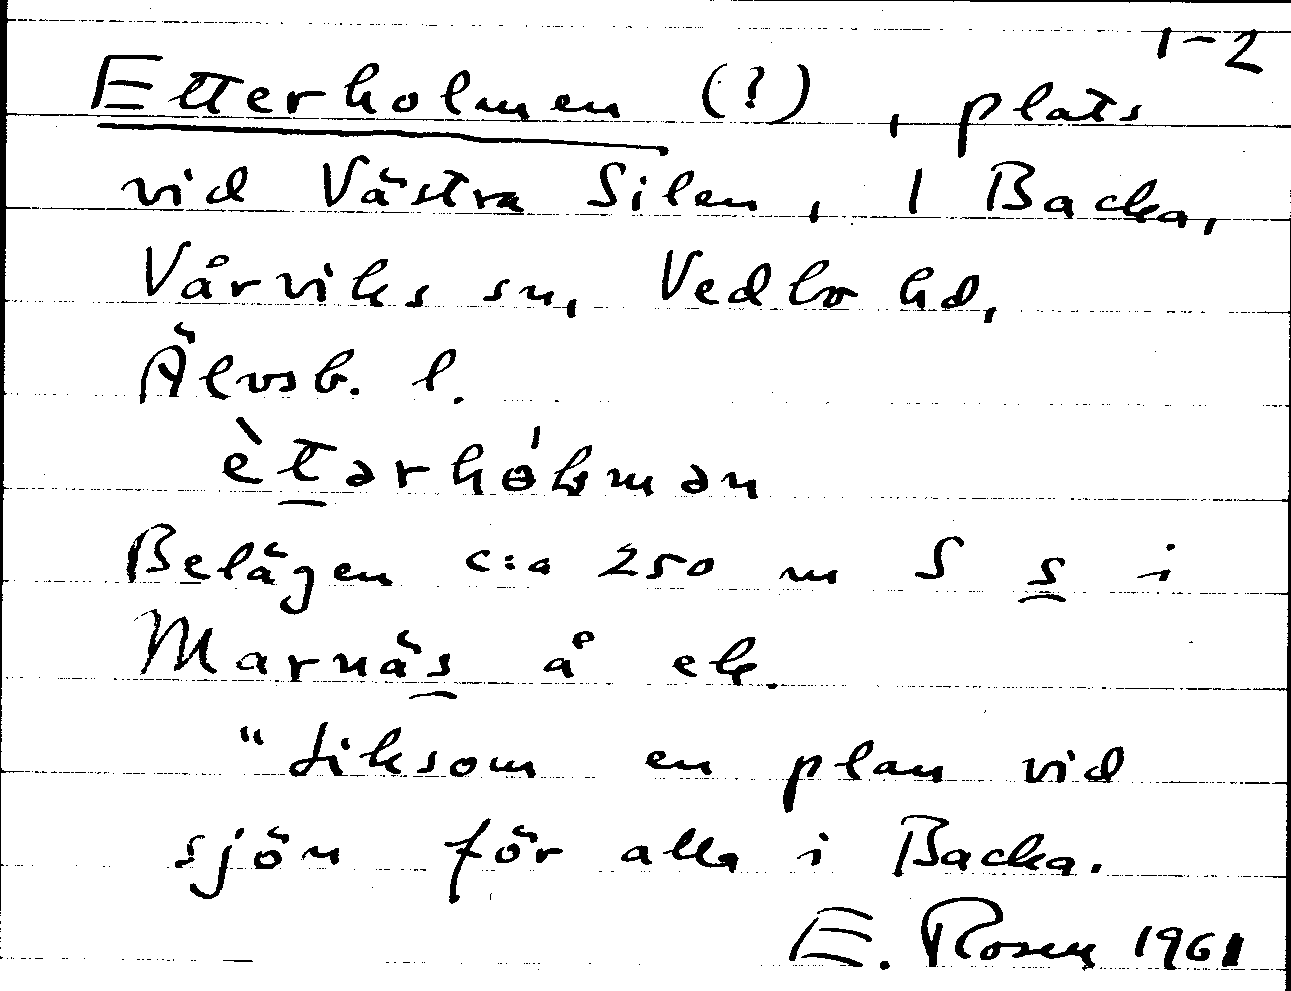 1-2
Etterholmen (?), plats
vid Västra Silen, 1 Backa,
Vårviks sn, Vedbo hd,
Älvsb. l.
Belägen c:a 250 m S s i
Marnäs å ek.
"Liksom en plan vid
sjön för alla i Backa.
E. Rosen 1961